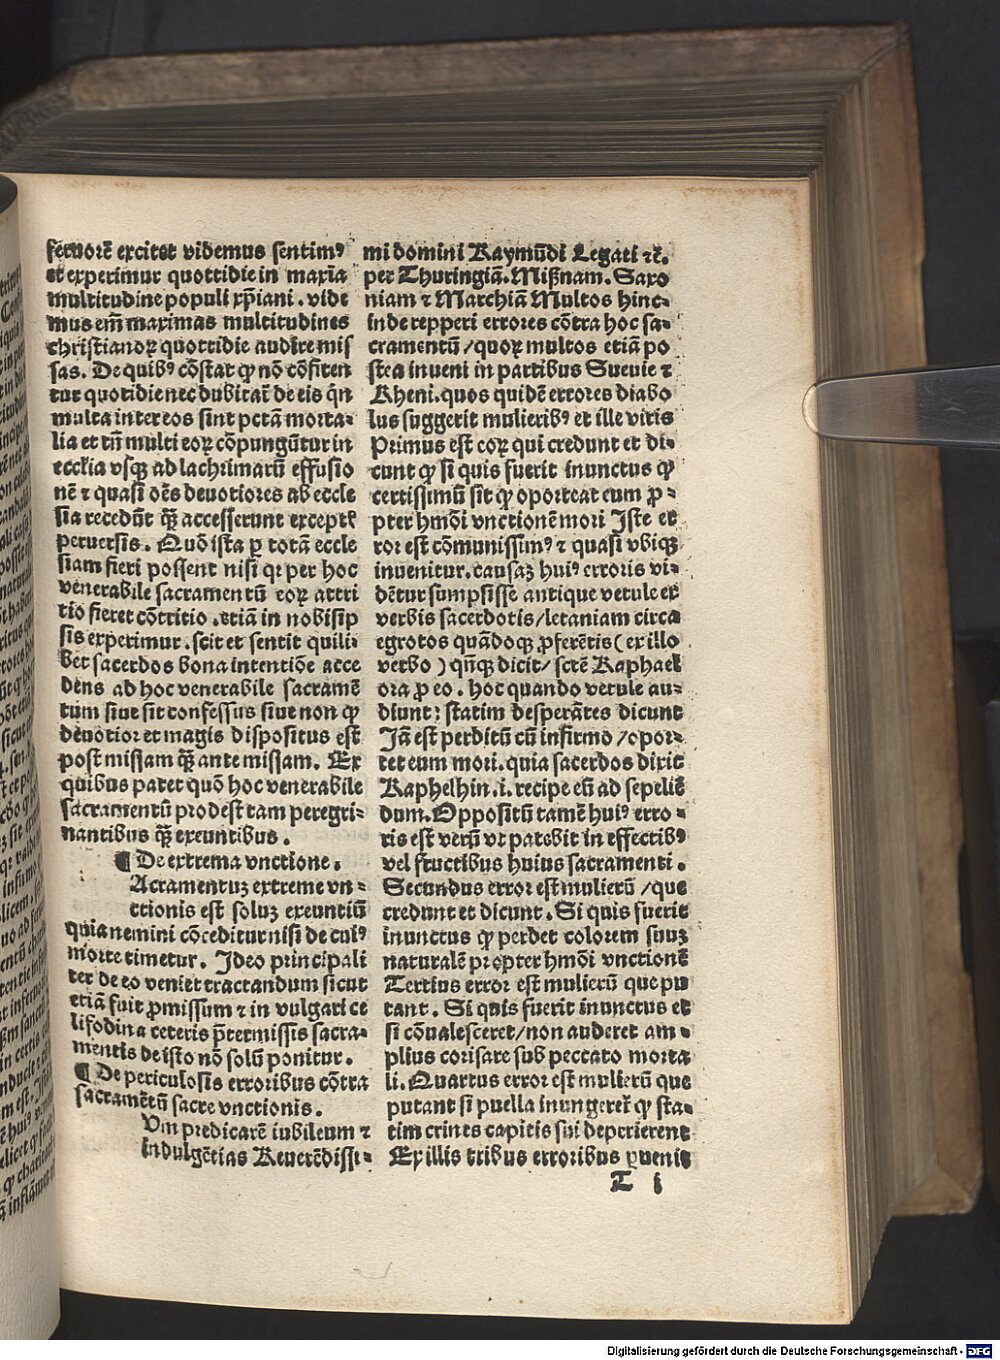 feruorē excitet videmus sentimꝰ
et experimur quottidie in maxīa
multitudine populi xp̄iani. vide
mus em̄ maximas multitudines
christianoꝝ quottidie audire mis
sas. De quibꝰ cōstat ꝙ nō cōfiten
tur quotidie nec dubitāt de eis q̇n
multa inter eos sint pctā morta⸗
lia et tn̄ multi eoꝝ cōpungūtur in
eccłia vsqꝫ ad lachrimarū effusio
nē ⁊ quasi oēs deuotiores ab eccle
sia recedūt qꝫ̄ accesserunt exceptꝭ
peruersis. Quō ista ꝑ totā eccle
siam fieri possent nisi qꝛ per hoc
venerabile sacramentū eoꝝ attri
tio fieret cōtritio. etiā in nobisip
sis experimur. scit et sentit quili⸗
bet sacerdos bona intentiōe acce
dens ad hoc venerabile sacramē
tum siue sit confessus siue non ꝙ
deuotior et magis dispositus est
post missam qꝫ̄ ante missam. Ex
quibus patet quō hoc venerabile
sacramentū prodest tam peregri⸗
nantibus qꝫ̄ exeuntibus.
¶ De extrema vnctione.
Acramentuꝫ extreme vn⸗
ctionis est soluꝫ exeuntiū
quia nemini cōceditur nisi de cuiꝰ
morte timetur. Ideo principali
ter de eo veniet tractandum sicut
etiā fuit ꝓmissum ⁊ in vulgari ce
lifodina ceteris p̄termissis sacra⸗
mentis de isto nō solū ponitur.
¶ De periculosis erroribus cōtra
sacramētū sacre vnctionis.
Vm predicarē iubileum ⁊
indulgētias Reuerēdissi⸗
mi domini Raymūdi Legati ⁊c̄.
per Thuringiā. Mißnam. Saxo
niam ⁊ Marchiā Multos hinc⸗
inde repperi errores cōtra hoc sa⸗
cramentū/quoꝝ multos etiā po
stea inueni in partibus Sueuie ⁊
Rheni. quos quidē errores diabo
lus suggerit mulieribꝰ et ille viris
Primus est eoꝝ qui credunt et di⸗
cunt ꝙ si quis fuerit inunctus ꝙ
certissimū sit ꝙ oporteat eum ꝓ⸗
pter hmōi vnctionē mori Iste er
ror est cōmunissimꝰ ⁊ quasi vbiqꝫ
inuenitur. causaꝫ huiꝰ erroris vi⸗
dētur sumpsisse antique vetule ex
verbis sacerdotis/letaniam circa
egrotos quādoqꝫ ꝓferētis (ex illo
verbo) qn̄qꝫ dicit/ sctē Raphael
ora ꝓ eo. hoc quando vetule au⸗
diunt: statim desperātes dicunt
Iā est perditū cū infirmo/opor⸗
tet eum mori. quia sacerdos dixit
Raphelhin .i. recipe eū ad sepeliē
dum. Oppositū tamē huiꝰ erro⸗
ris est verū vt patebit in effectibꝰ
vel fructibus huius sacramenti.
Secundus error est mulierū /que
credunt et dicunt. Si quis fuerit
inunctus ꝙ perdet colorem suuꝫ
naturalē propter hmōi vnctionē
Tertius error est mulierū que pu
tant. Si quis fuerit inunctus et
si cōualesceret/non auderet am⸗
plius corisare sub peccato morta
li. Quartus error est mulierū que
putant si puella inungeret̄ ꝙ sta⸗
tim crines capitis sui deperierent
Ex illis tribus erroribus ꝓuenit
T i
Digitalisierung gefördert durch die Deutsche Forschungsgemeinschaft - DFG